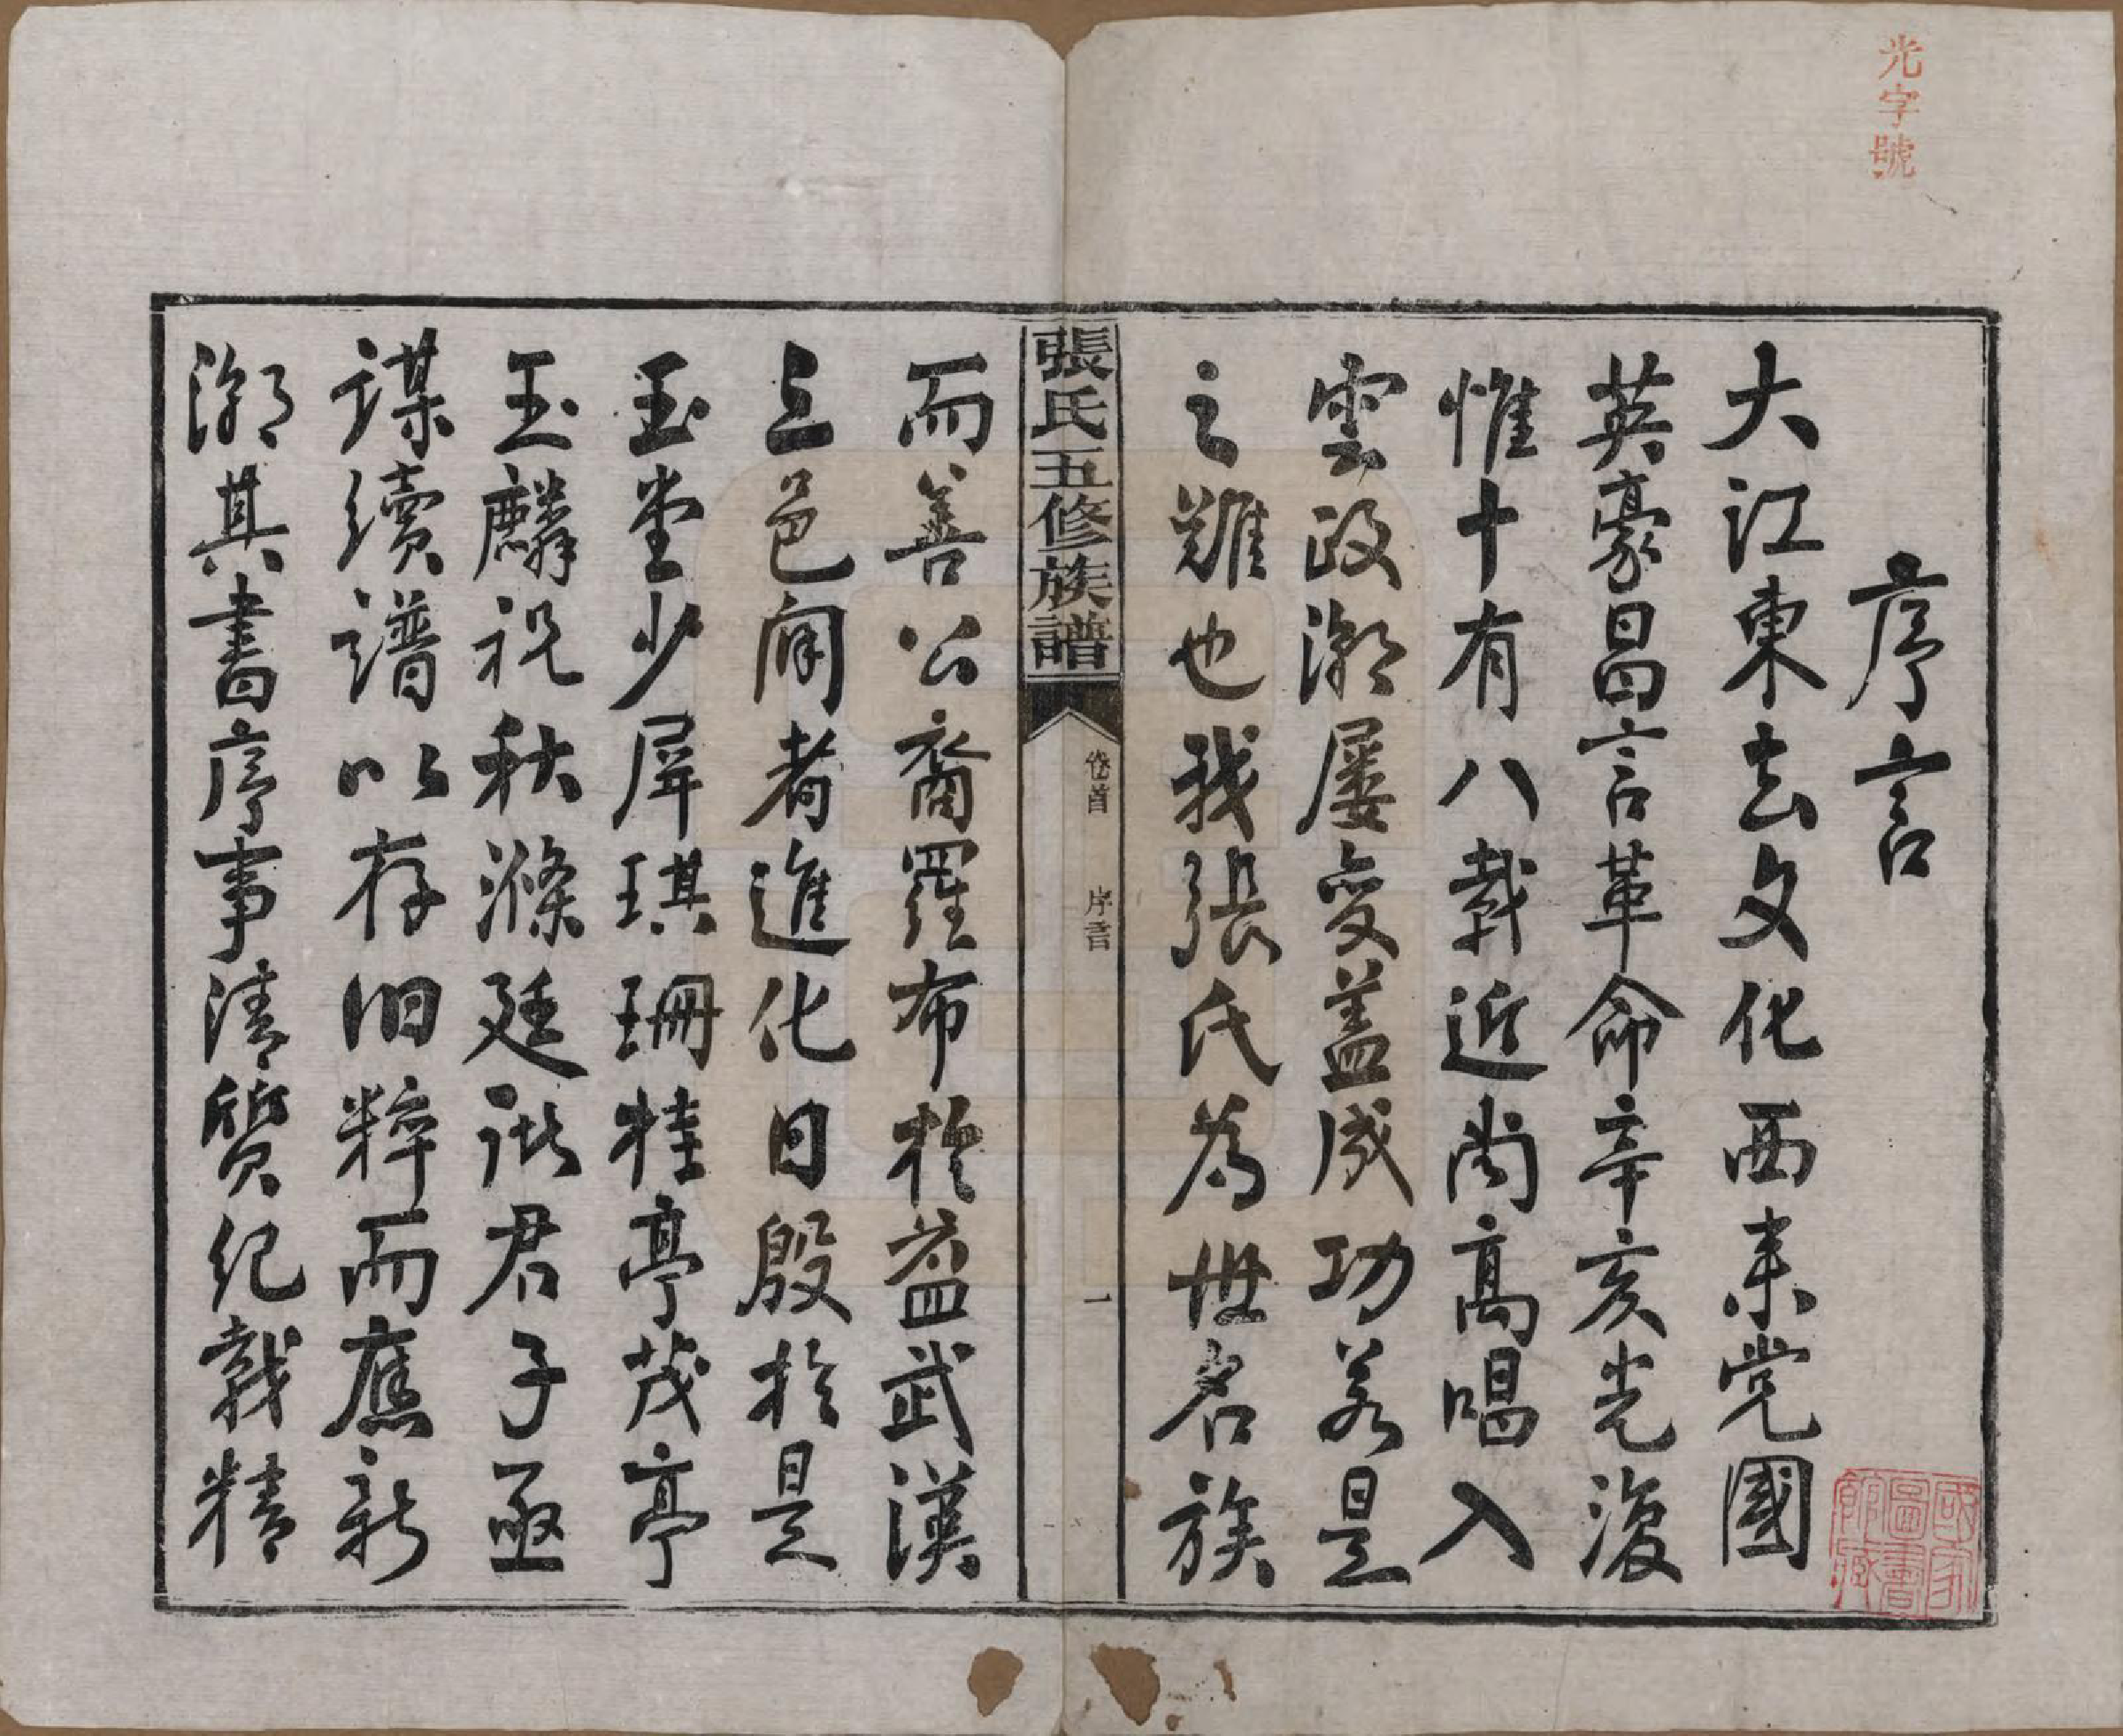 光字號
序言
大江東去文化西来党國
英豪昌言革命辛亥光復
惟十有八載近尚高唱入
雲政潮屡变盖成功若是
之難也我張氏為世名族
張氏五修族譜
卷首
序言
一
而善公裔羅布於益武漢
三邑間者進化日殷於是
玉堂少屏琪珊桂亭茂亭
玉麟祝秋滌廷諸君子亟
謀續譜以存旧粹而應新
潮其書序事清質纪載精
國家圖書館藏